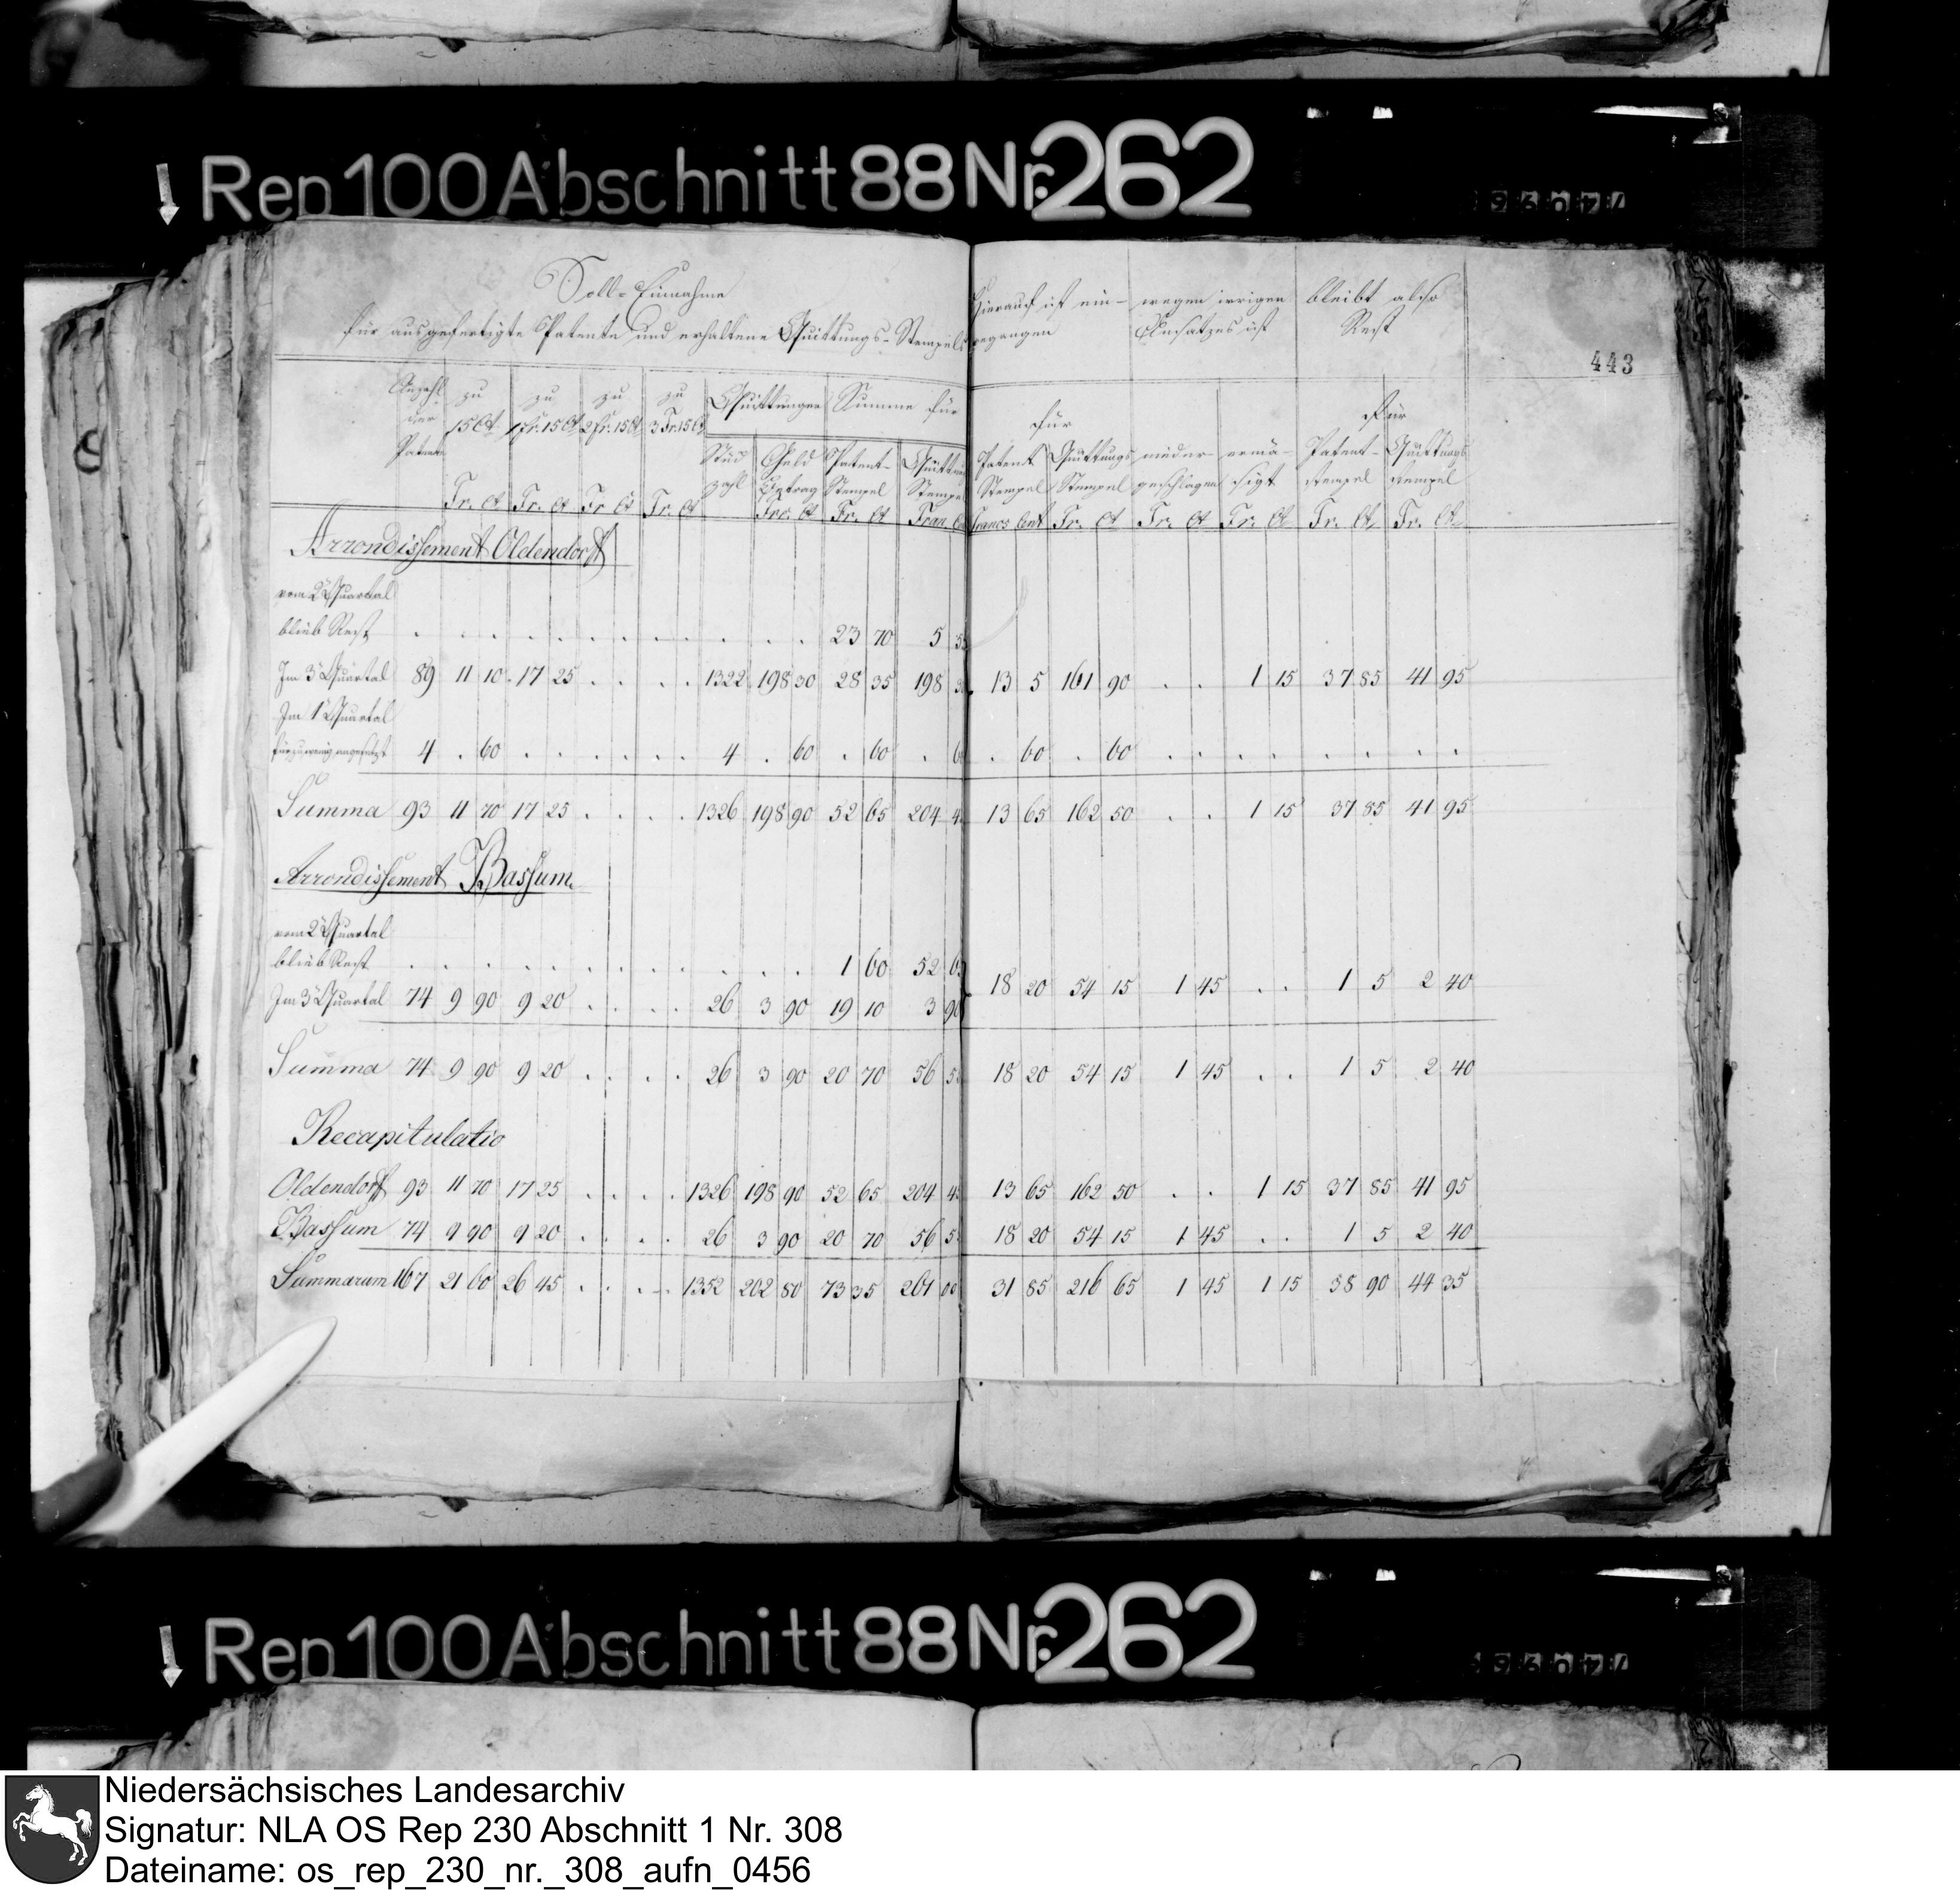 Rep 100 Abschnitt 88 Nr. 262
443
Soll-Einnahme
für ausgefertigte Patente und erhaltene Quittungs-Stempel
Hierauf ist ein- wegen irrigen bleibt also
gegangen Ansatzes ist Rest
Anzahl der Patente zu 15 Ct zu 1 Fr. 15 Ct zu 2 Fr. 15 Ct zu 3 Fr. 15 Ct Quittungen Summe für für für
Stück zahl Geld Betrag Patent-Stempel Quittungs Stempel Patent Stempel Quittungs Stempel nieder geschlagen ermä-sigt Patent-stempel Quittungs stempel
Fr. Ct Fr. Ct Fr Ct Fr. Ct Frc. Ct Fr. Ct Fran Francs Cent Fr. Ct Fr. Ct Fr. Ct Fr. Ct Fr. Ct
Arrondissement Oldendorff
vom 2 Quartal
blieb Rest . . . . . . . . . . . . 23 70 5
Im 3 Quartal 89 11 10 17 25 . . . . 1322 198 30 28 35 198 13 5 161 90 . . 1 15 37 85 41 95
Im 1 Quartal
für zu wenig angesetzt 4 . 60 . . . . . . 4 . 60 . 60 . . 60 . 60 . . . . . . . .
Summa 93 11 70 17 25 . . . . 1326 198 90 52 65 204 13 65 162 50 . . 1 15 37 85 41 95
Arrondissement Bassum
vom 2 Quartal
blieb Rest . . . . . . . . . . . . 1 60 52
Im 3 Quartal 74 9 90 9 20 . . . . 26 3 90 19 10 3 90 18 20 54 15 1 45 . . 1 5 2 40
Summa 74 9 90 9 20 . . . . 26 3 90 20 70 56 18 20 54 15 1 45 . . 1 5 2 40
Recapitulatio
Oldendorff 93 11 70 17 25 . . . . 1326 198 90 52 65 204 13 65 162 50 . . 1 15 37 85 41 95
Bassum 74 9 90 9 20 . . . . 26 3 90 20 70 56 18 20 54 15 1 45 . . 1 5 2 40
Summarum 167 21 60 26 45 . . . . 1352 202 80 73 35 261 00 31 85 216 65 1 45 1 15 38 90 44 35
Rep 100 Abschnitt 88 Nr. 262
Niedersächsisches Landesarchiv
Signatur: NLA OS Rep 230 Abschnitt 1 Nr. 308
Dateiname: os_rep_230_nr._308_aufn_0456